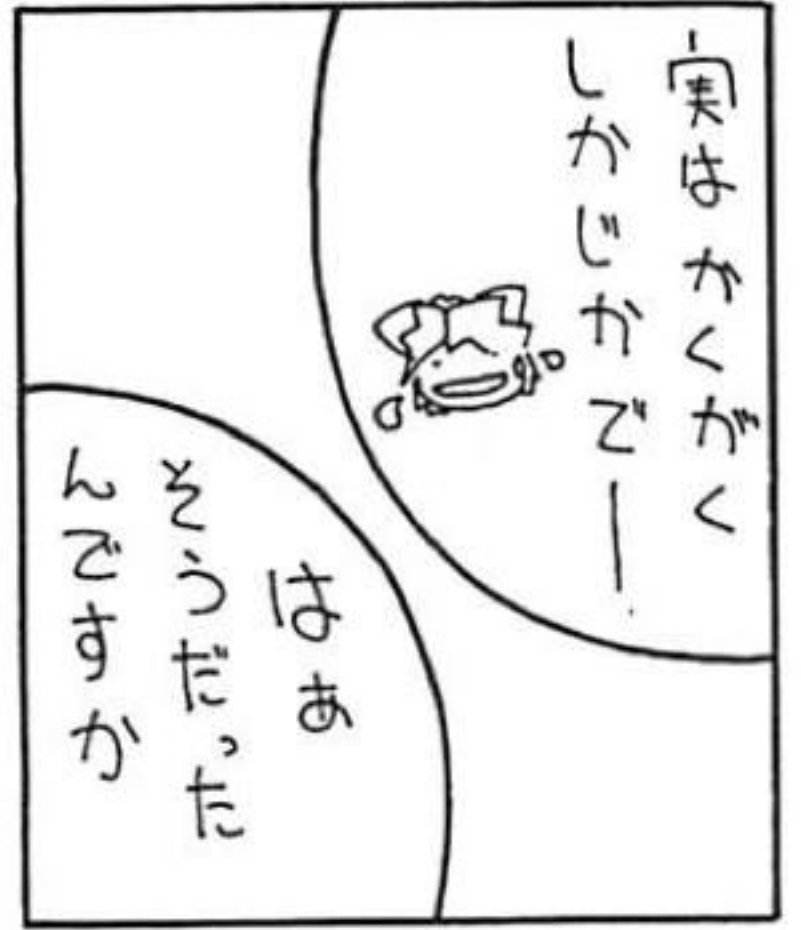 実はがくがく
しかじかでー
はぁ
そうだった
んですか